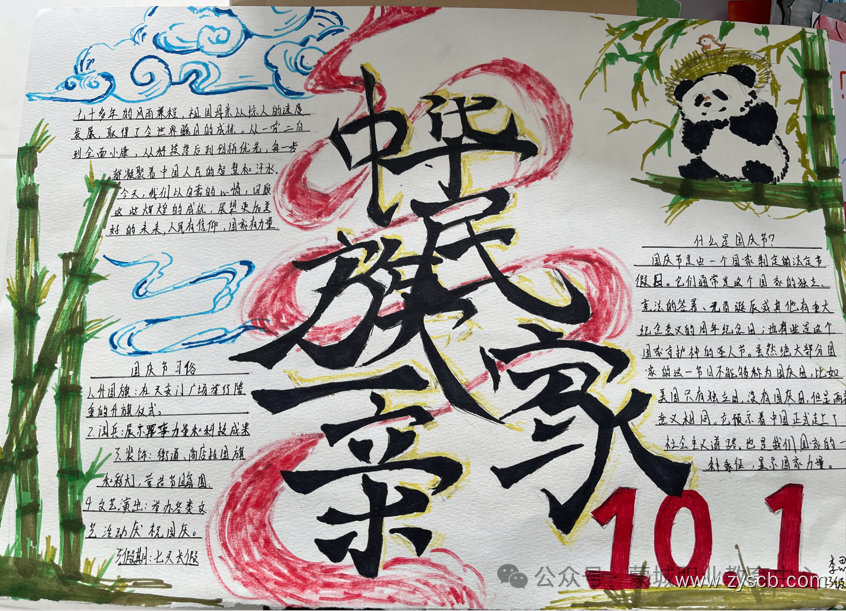 中华
民族
一家亲
七十多年的风雨兼程,祖国母亲以惊人的速度
发展,取得了令世界瞩目的成就,从一穷二白
到全面小康,从科技落后到创新优先,每一步
都凝聚着中国人民的智慧和汗水。
今天,我们以自豪的心情,回顾
这些辉煌的成就,展望更加美
好的未来,人民有信仰,国家有力量
国庆节习俗
1.升国旗:在天安门广场举行隆
重的升旗仪式。
2.阅兵:展示军事力量和科技成果
3.装饰:街道、商店挂国旗
和彩灯,营造节日氛围
4.文艺演出:举办各类文
艺活动庆祝国庆。
5.假期:七天大假
什么是国庆节?
国庆节是由一个国家制定的法定节
假日。它们通常是这个国家的独立、
宪法的签署、元首诞辰或其他有重大
纪念意义的周年纪念日;也有些是这个
国家守护神的圣人节。虽然绝大部分国
家的这一节日不能够称为国庆日,比如
美国只有独立日,没有国庆日,但是两者
意义相同。它预示着中国正式走上了
社会主义道路,也是我们国家的一
种象征,显示国家力量。
10 1
公众号·蒙城职业教育中心
www.zyscb.com